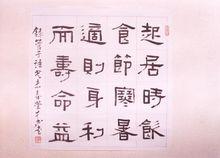 起居時飲
食節寒暑
適則身利
而壽命益
錄管子語